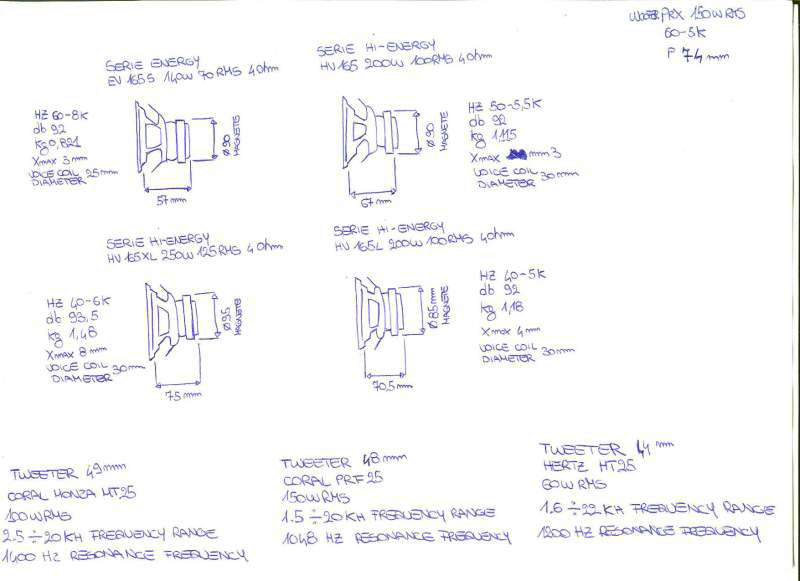 WOOFER PRX 150W RMS
60-5K
P 74mm
SERIE ENERGY
EV 165S 140W 70RMS 4Ohm
HZ 60-8K
db 92
kg 0,821
Xmax 3mm
VOICE COIL 25mm
DIAMETER
Ø 90
MAGNETE
57mm
SERIE Hi-ENERGY
HV 165 200W 100RMS 4Ohm
HZ 50-5,5K
db 92
kg 1,115
Xmax mm 3
VOICE COIL
DIAMETER 30mm
Ø 90
MAGNETE
67mm
SERIE Hi-ENERGY
HV 165XL 250W 125RMS 4Ohm
HZ 40-6K
db 93,5
kg 1,48
Xmax 8mm
VOICE COIL
DIAMETER 30mm
Ø 95
MAGNETE
75mm
SERIE Hi-ENERGY
HV 165L 200W 100RMS 4Ohm
HZ 40-5K
db 92
kg 1,18
Xmax 4mm
VOICE COIL
DIAMETER 30mm
Ø 85mm
MAGNETE
70,5mm
TWEETER 49mm
CORAL MONZA MT25
100W RMS
2.5÷20KH FREQUENCY RANGE
1400 HZ RESONANCE FREQUENCY
TWEETER 48mm
CORAL PRF25
150W RMS
1.5÷20KH FREQUENCY RANGE
1048 HZ RESONANCE FREQUENCY
TWEETER 41mm
HERTZ MT25
60W RMS
1.6÷22KH FREQUENCY RANGE
1200 HZ RESONANCE FREQUENCY